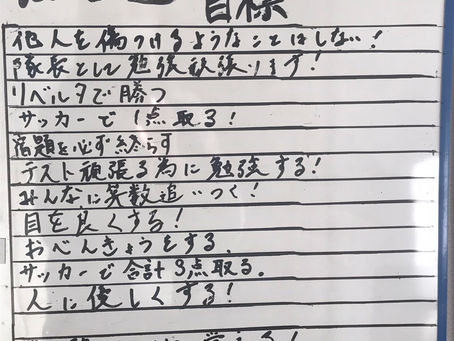 目標
他人を傷つけるようなことはしない!
隊長として勉強頑張ります!
リベルタで勝つ
サッカーで1点取る!
宿題を必ず終らす
テスト頑張る為に勉強する!
みんなに算数追いつく!
目を良くする!
おべんきょうをする.
サッカーで合計3点取る.
人に優しくする!